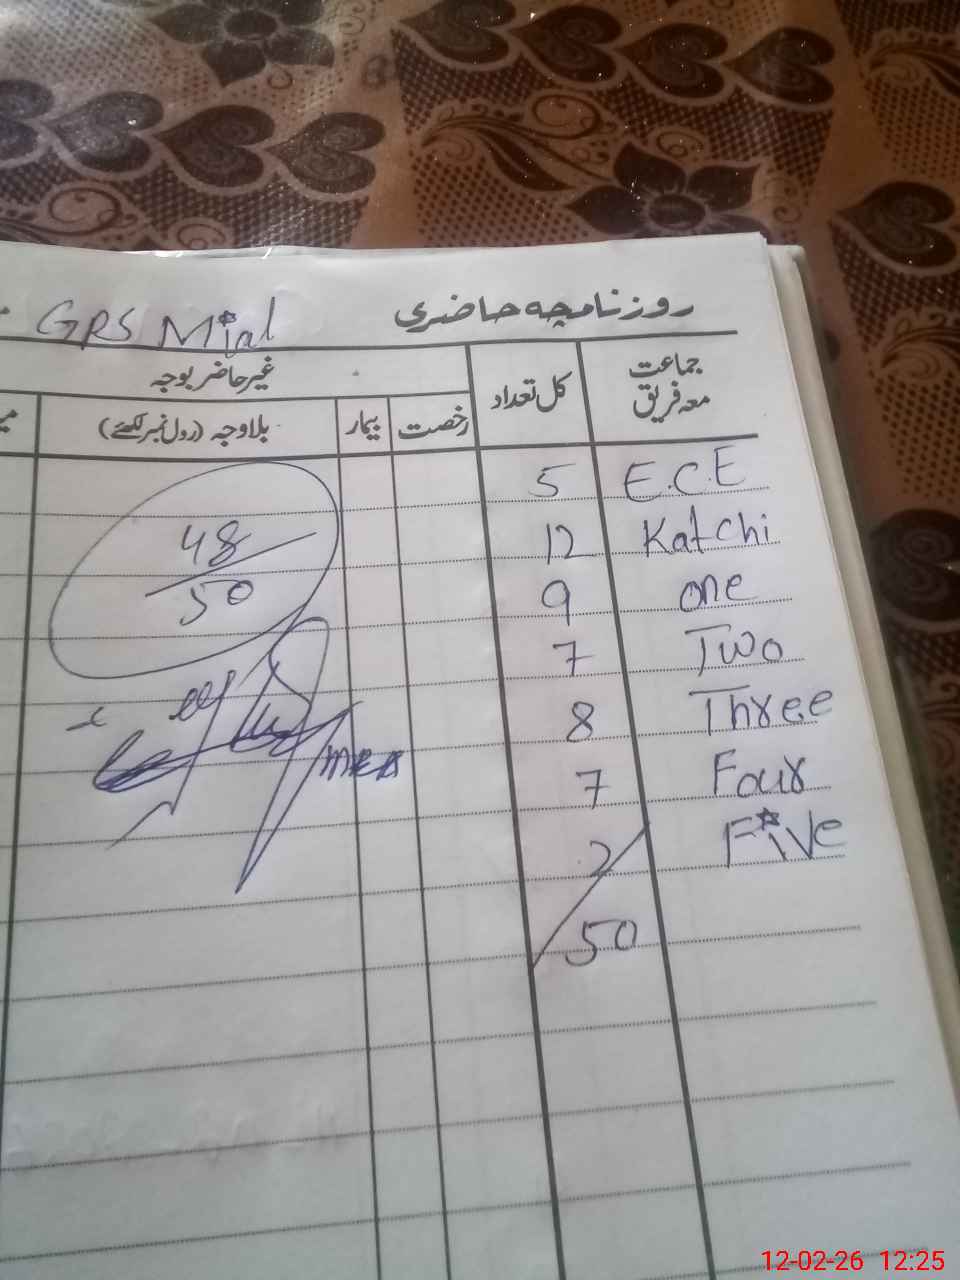 GRS Mial
روزنامچہ حاضری
جماعت معہ فریق
کل تعداد
غیر حاضر بوجہ
رخصت
بیمار
بلاوجہ (رول نمبر لکھئے)
E.C.E 5
Katchi 12
one 9
Two 7
Three 8
Four 7
Five 2
50
48
50
12-02-26 12:25